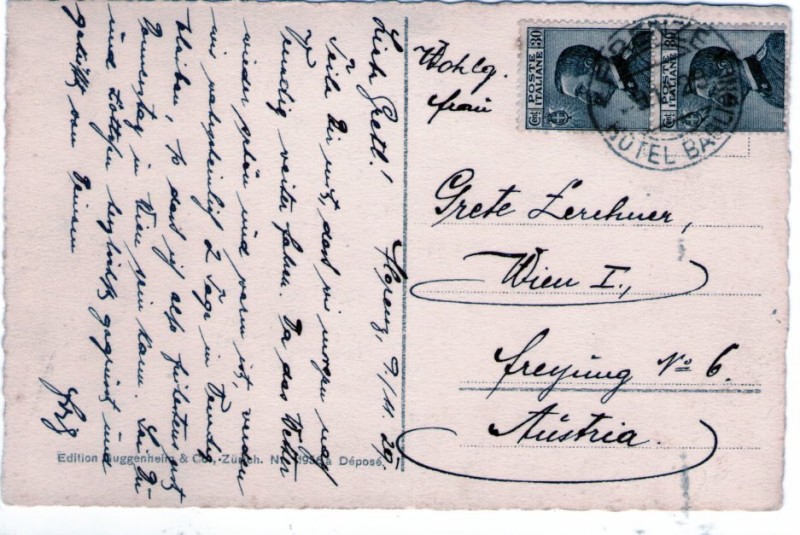 Florenz, 9/11.29.
Lieb Gretl!
Teile Dir mit, dass wir morgen nach
Venedig weiter fahren. Da das Wetter
wieder schön und warm ist, werden
wir wahrscheinlich 2 Tage in Venedig
bleiben, so dass ich also frühestens erst
Donnerstag in Wien sein kann. Sei Du
und herzlichst gegrüsst und
geküsst von Deinem
Wohlg.
frau
Grete Lerchner,
Wien I.,
Freyung No 6.
Austria.
POSTE ITALIANE
Cent. 30
POSTE ITALIANE
Cent. 30
FIRENZE
HOTEL BAGLIONI
Edition Guggenheim & Co., Zürich. No. Déposé.